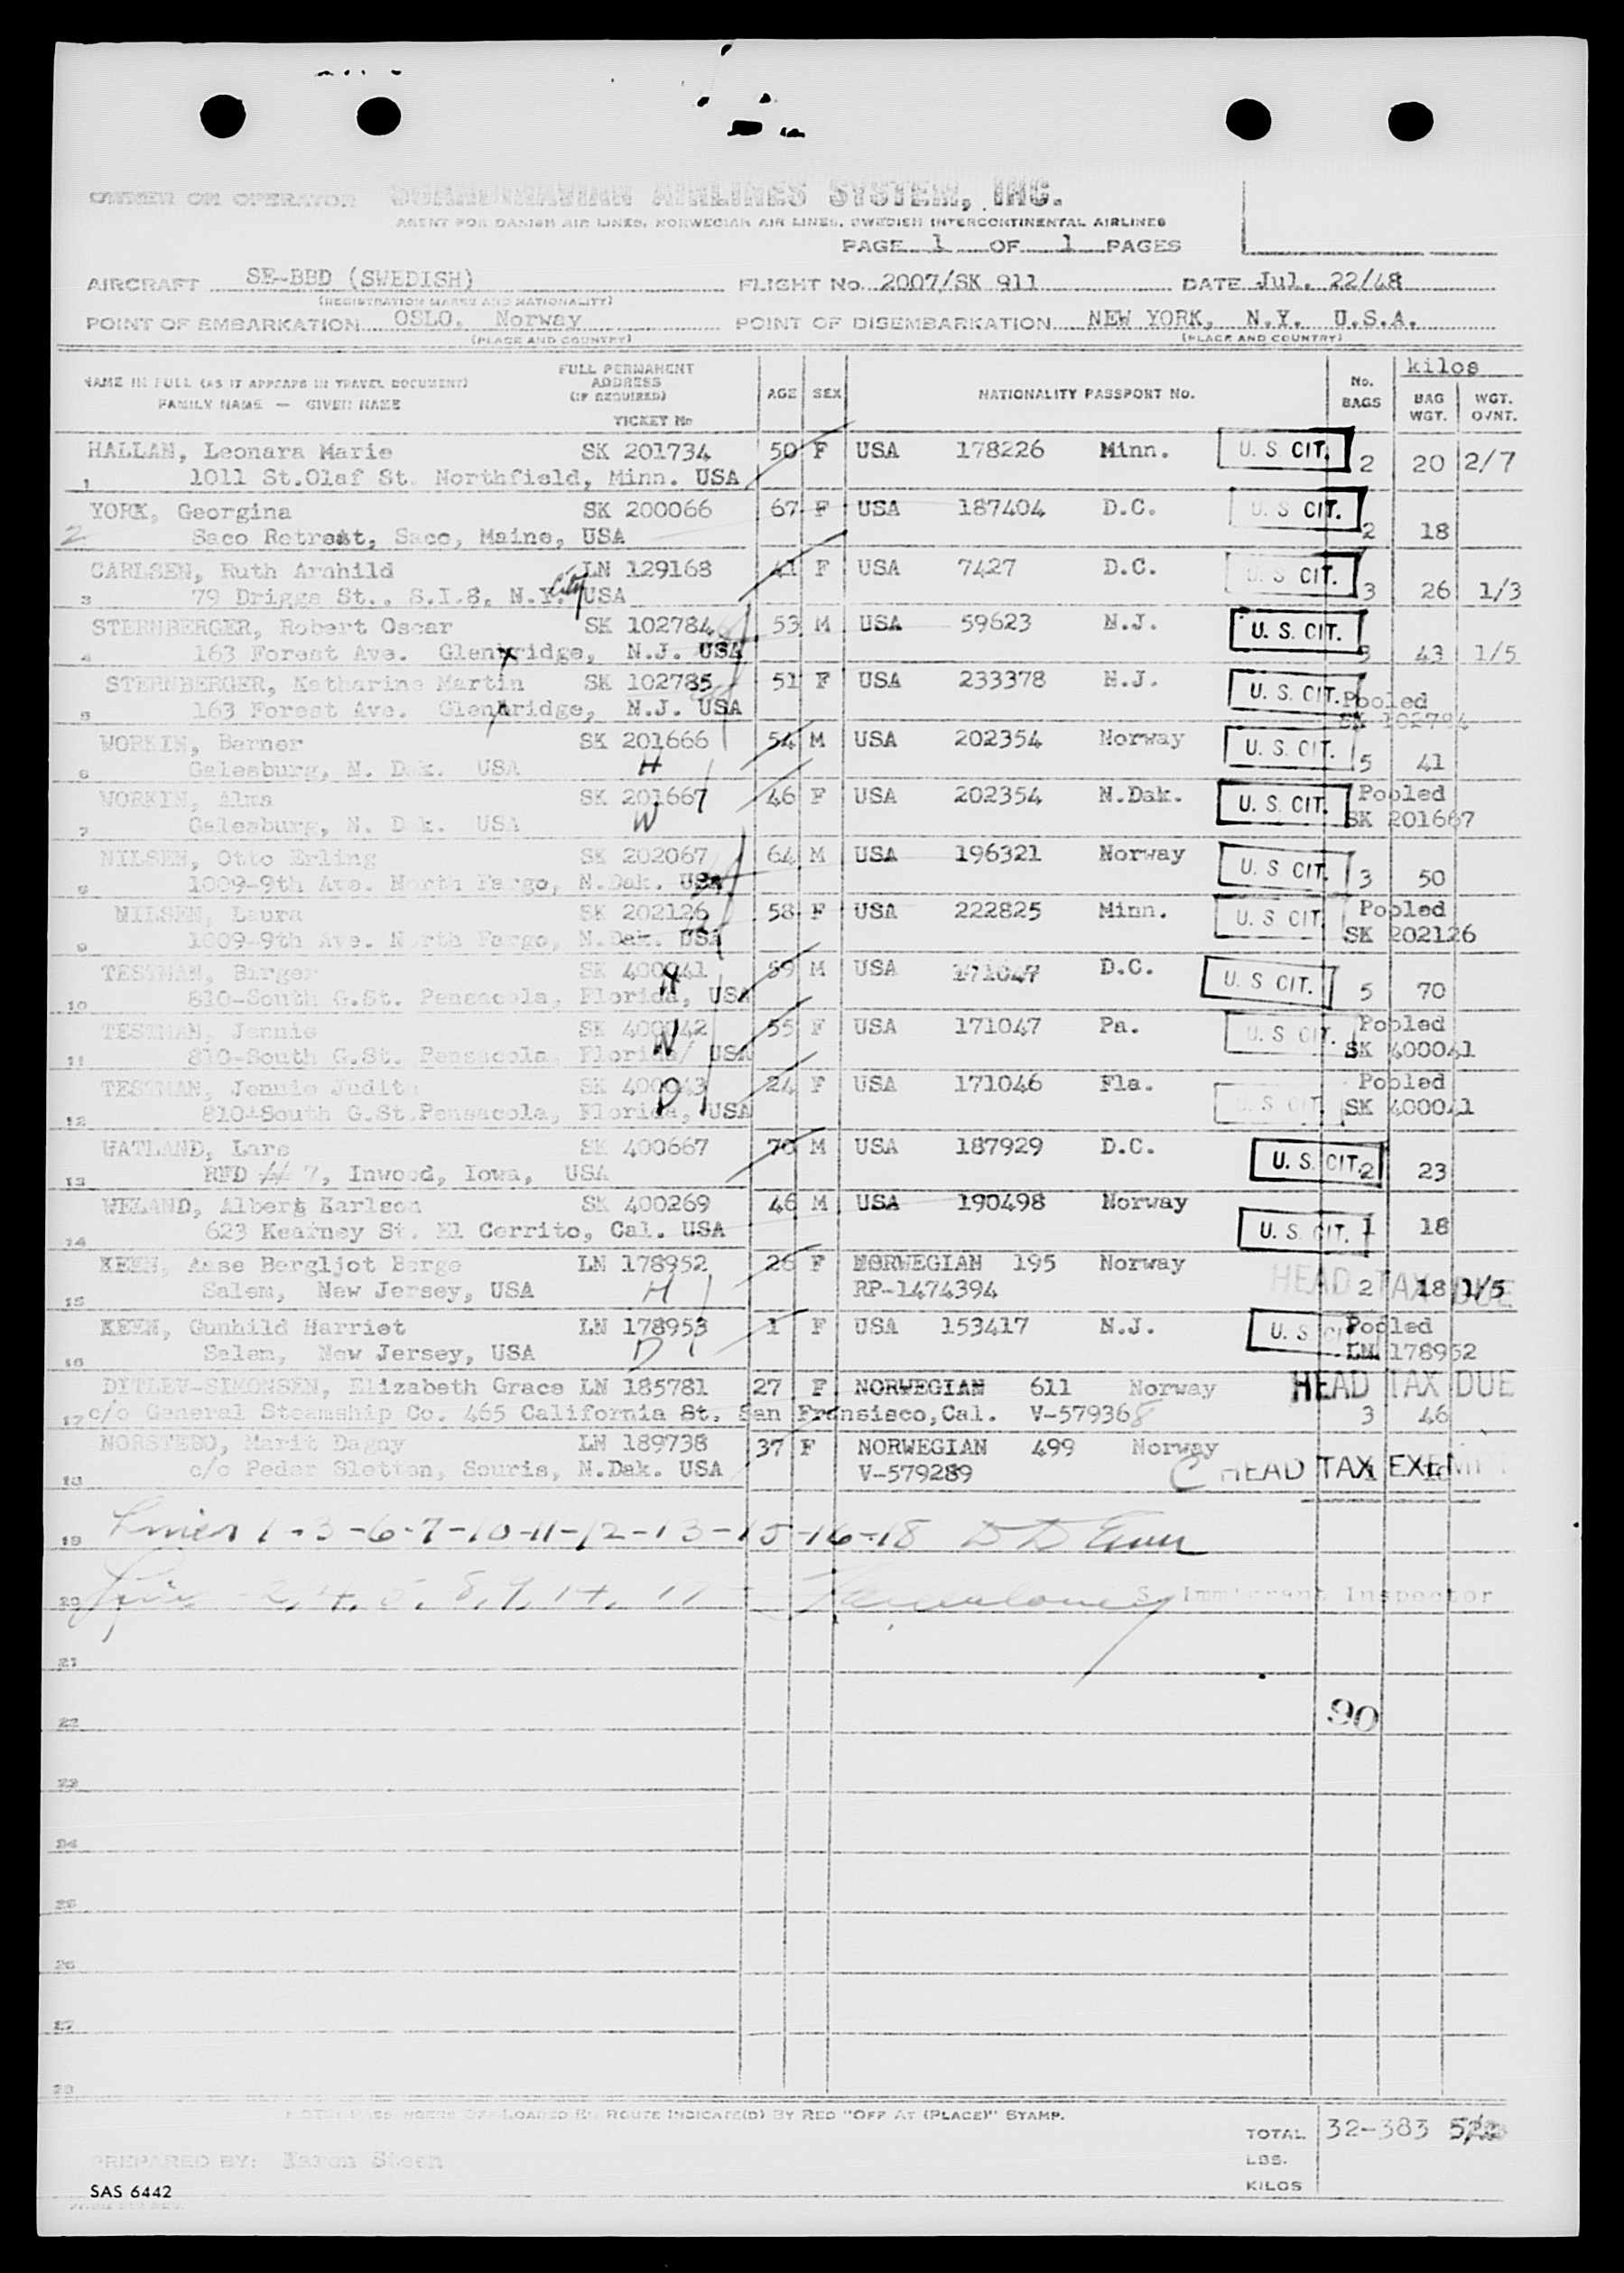 OWNER OR OPERATOR SCANDINAVIAN AIRLINES SYSTEM, INC.
AGENT FOR DANISH AIR LINES, NORWEGIAN AIR LINES, SWEDISH INTERCONTINENTAL AIRLINES
PAGE 1 OF 1 PAGES
AIRCRAFT SE-BBD (SWEDISH) FLIGHT No. 2007/SK 911 DATE Jul. 22/48
(REGISTRATION MARKS AND NATIONALITY)
POINT OF EMBARKATION OSLO, Norway POINT OF DISEMBARKATION NEW YORK, N.Y. U.S.A.
(PLACE AND COUNTRY) (PLACE AND COUNTRY)
NAME IN FULL (AS IT APPEARS IN TRAVEL DOCUMENT) FULL PERMANENT ADDRESS (IF REQUIRED) AGE SEX NATIONALITY PASSPORT No. No. BAGS kilos
FAMILY NAME — GIVEN NAME TICKET No BAG WGT. WGT. O/NT.
HALLAN, Leonara Marie SK 201734 50 F USA 178226 Minn. U. S CIT. 2 20 2/7
1 1011 St.Olaf St. Northfield, Minn. USA
YORK, Georgina SK 200066 67 F USA 187404 D.C. U. S CIT. 2 18
2 Saco Retreat, Saco, Maine, USA
CARLSEN, Ruth Arnhild LN 129168 41 F USA 7427 D.C. U. S CIT. 3 26 1/3
3 79 Driggs St., S.I.8, N.Y. City USA
STERNBERGER, Robert Oscar SK 102784 53 M USA 59623 N.J. U. S. CIT. 3 43 1/5
4 163 Forest Ave. Glenridge, N.J. USA
STERNBERGER, Katharine Martin SK 102785 51 F USA 233378 N.J. U. S. CIT. Pooled
5 163 Forest Ave. Glenridge, N.J. USA SK 102784
WORKIN, Berner SK 201666 54 M USA 202354 Norway U. S. CIT. 5 41
6 Galesburg, N. Dak. USA H
WORKIN, Alma SK 201667 46 F USA 202354 N.Dak. U. S. CIT. Pooled
7 Galesburg, N. Dak. USA W SK 201667
NILSEN, Otto Erling SK 202067 64 M USA 196321 Norway U. S CIT. 3 50
8 1009-9th Ave. North Fargo, N.Dak. USA
NILSEN, Laura SK 202126 58 F USA 222825 Minn. U. S CIT. Pooled
9 1009-9th Ave. North Fargo, N.Dak. USA SK 202126
TESTMAN, Birger SK 400041 59 M USA 171047 D.C. U. S CIT. 5 70
10 810-South G.St. Pensacola, Florida, USA H
TESTMAN, Jennie SK 400042 55 F USA 171047 Pa. U. S CIT. Pooled
11 810-South G.St. Pensacola, Florida/ USA W SK 400041
TESTMAN, Jennie Judith SK 400043 24 F USA 171046 Fla. U. S CIT. Pooled
12 810-South G.St.Pensacola, Florida, USA D SK 400041
HATLAND, Lars SK 400667 70 M USA 187929 D.C. U. S. CIT. 2 23
13 RFD # 7, Inwood, Iowa, USA
WELAND, Albert Karlson SK 400269 46 M USA 190498 Norway U. S. CIT. 1 18
14 623 Kearney St. El Cerrito, Cal. USA
KEEN, Aase Bergljot Borge LN 178952 26 F NORWEGIAN 195 Norway HEAD TAX DUE
15 Salem, New Jersey, USA H RP-1474394 2 18 1/5
KEEN, Gunhild Harriet LN 178953 1 F USA 153417 N.J. U. S CIT. Pooled
16 Salem, New Jersey, USA D LN 178952
DITLEV-SIMONSEN, Elizabeth Grace LN 185781 27 F NORWEGIAN 611 Norway HEAD TAX DUE
17 c/o General Steamship Co. 465 California St. San Fransisco,Cal. V-579368 3 46
NORSTEBO, Marit Dagny LN 189738 37 F NORWEGIAN 499 Norway
18 c/o Peder Sletten, Souris, N.Dak. USA V-579289 C HEAD TAX EXEMPT
19 Lines 1-3-6-7-10-11-12-13-15-16-18
20 Lines 2, 4, 5, 8, 9, 14, 17 Immigrant Inspector
21
22 90
23
24
25
26
27
28
NOTE: PASSENGERS OFF-LOADED EN ROUTE INDICATE(D) BY RED "OFF AT (PLACE)" STAMP.
TOTAL 32-383
LBS.
PREPARED BY: Karen Steen
KILOS
SAS 6442